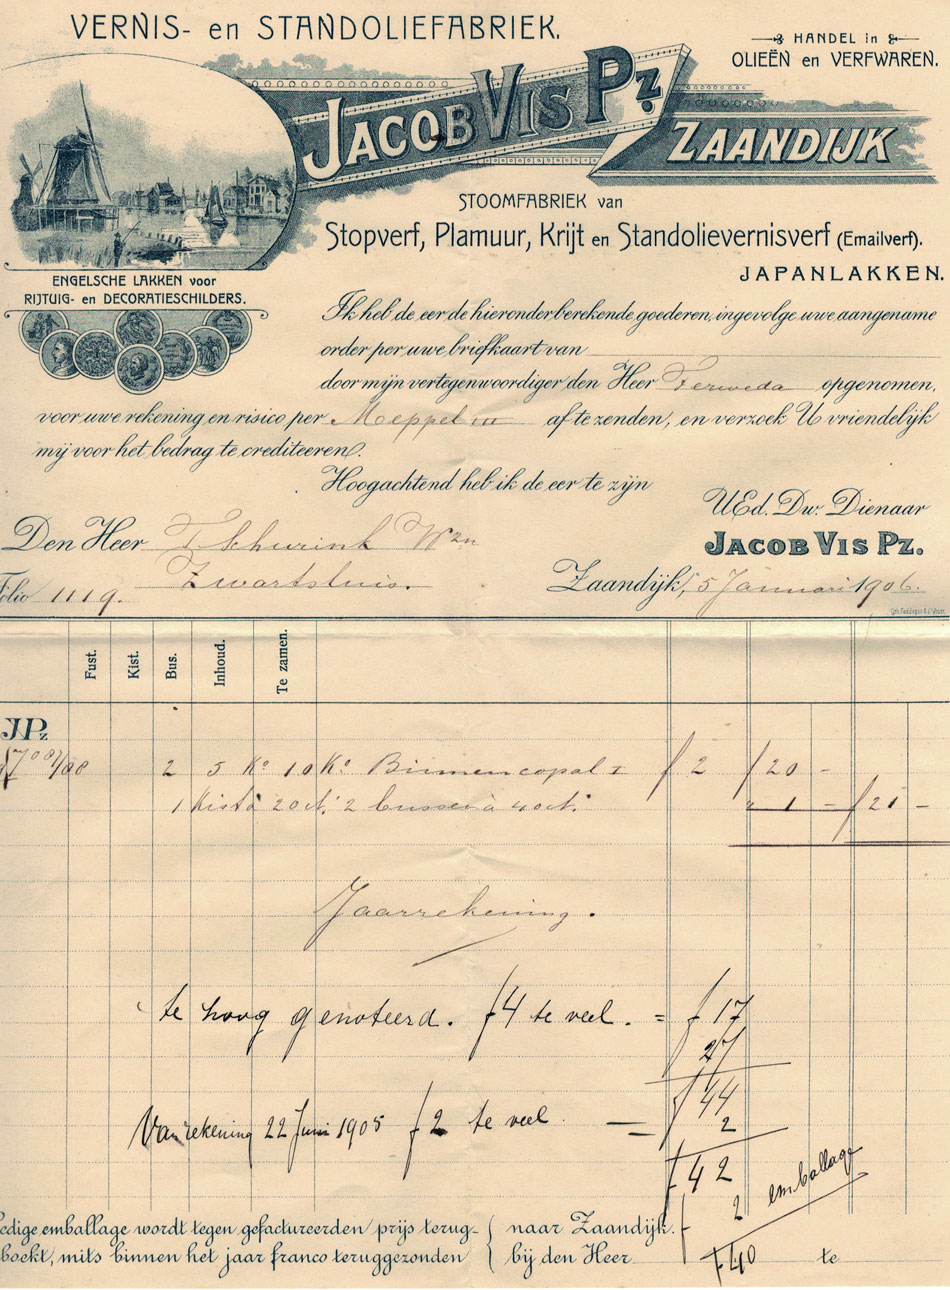 VERNIS- en STANDOLIEFABRIEK.
HANDEL in
OLIEËN en VERFWAREN.
JACOB VIS Pz.
ZAANDIJK
STOOMFABRIEK van
Stopverf, Plamuur, Krijt en Standolievernisverf (Emailverf).
JAPANLAKKEN.
ENGELSCHE LAKKEN voor
RIJTUIG- en DECORATIESCHILDERS.
Ik heb de eer de hieronder berekende goederen, ingevolge uwe aangename
order per uwe briefkaart van
door mijn vertegenwoordiger den Heer Ferweda opgenomen,
voor uwe rekening en risico per Meppel af te zenden, en verzoek U vriendelijk
mij voor het bedrag te crediteeren.
Hoogachtend heb ik de eer te zijn
UEd. Dw. Dienaar
JACOB VIS Pz.
Den Heer T Schurink Wzn
Zwartsluis.
Folio 1119.
Zaandijk, 5 Januari 1906.
Fust. Kist. Bus. Inhoud. Te zamen.
JPz
2 5 Ko 10 Ko Binnencopal I f 2 f 20 -
1 Kist à 20 ct. 2 bussen à 40 ct. " 1 - f 21 -
Jaarrekening.
te hoog genoteerd. f 4 te veel. = f 17
27
f 44
Van rekening 22 Juni 1905 f 2 te veel — 2
f 42
f 2 emballage
f 40
edige emballage wordt tegen gefactureerden prijs terug-
boekt, mits binnen het jaar franco teruggezonden
naar Zaandijk.
bij den Heer te